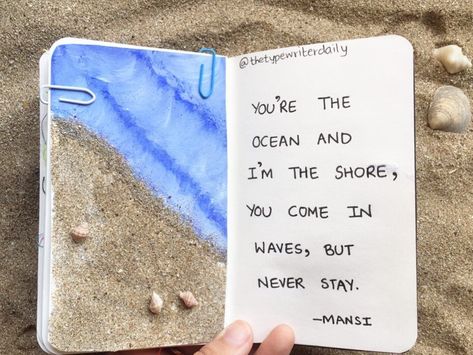 @thetypewriterdaily
YOU'RE THE
OCEAN AND
I'M THE SHORE,
YOU COME IN
WAVES, BUT
NEVER STAY.
—MANSI